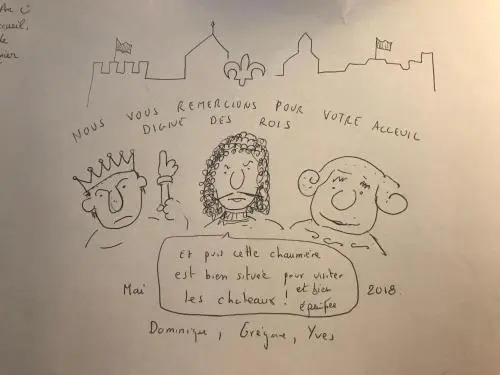 NOUS VOUS REMERCIONS POUR VOTRE ACCEUIL
DIGNE DES ROIS
Et puis cette chaumière
est bien située pour visiter
les chateaux ! et bien
Mai
2018.
Dominique, Grégoire, Yves